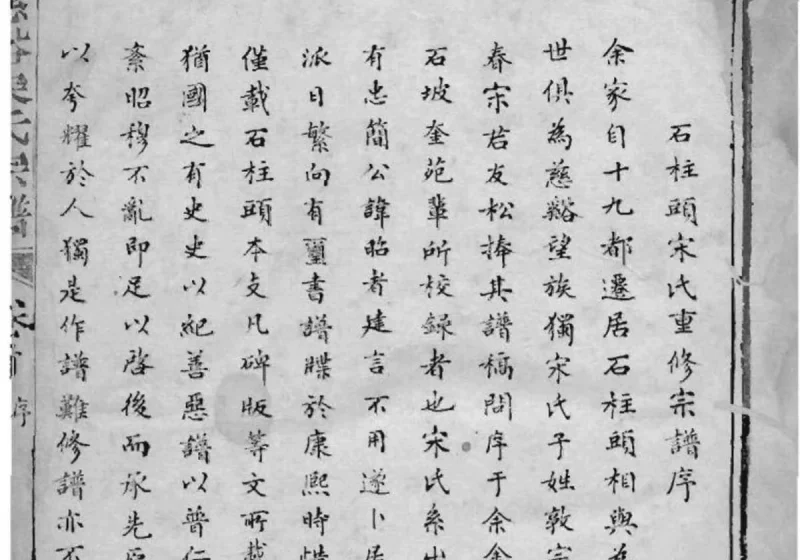 石柱頭宋氏重修宗譜序
余家自十九都遷居石柱頭相與並
世俱為慈谿望族獨宋氏子姓敦宗
春宋君友松捧其譜稿問序于余余
石坡奎苑輩所校録者也宋氏系出
有忠簡公諱昭者建言不用遂卜居
派日繁向有璽書譜牒於康熙時惜
僅載石柱頭本支凡碑版等文所載
猶國之有史史以紀善惡譜以普仁
紊昭穆不亂即足以啓後而承先
以夸耀於人獨是作譜難修譜亦不
氏宗譜
序